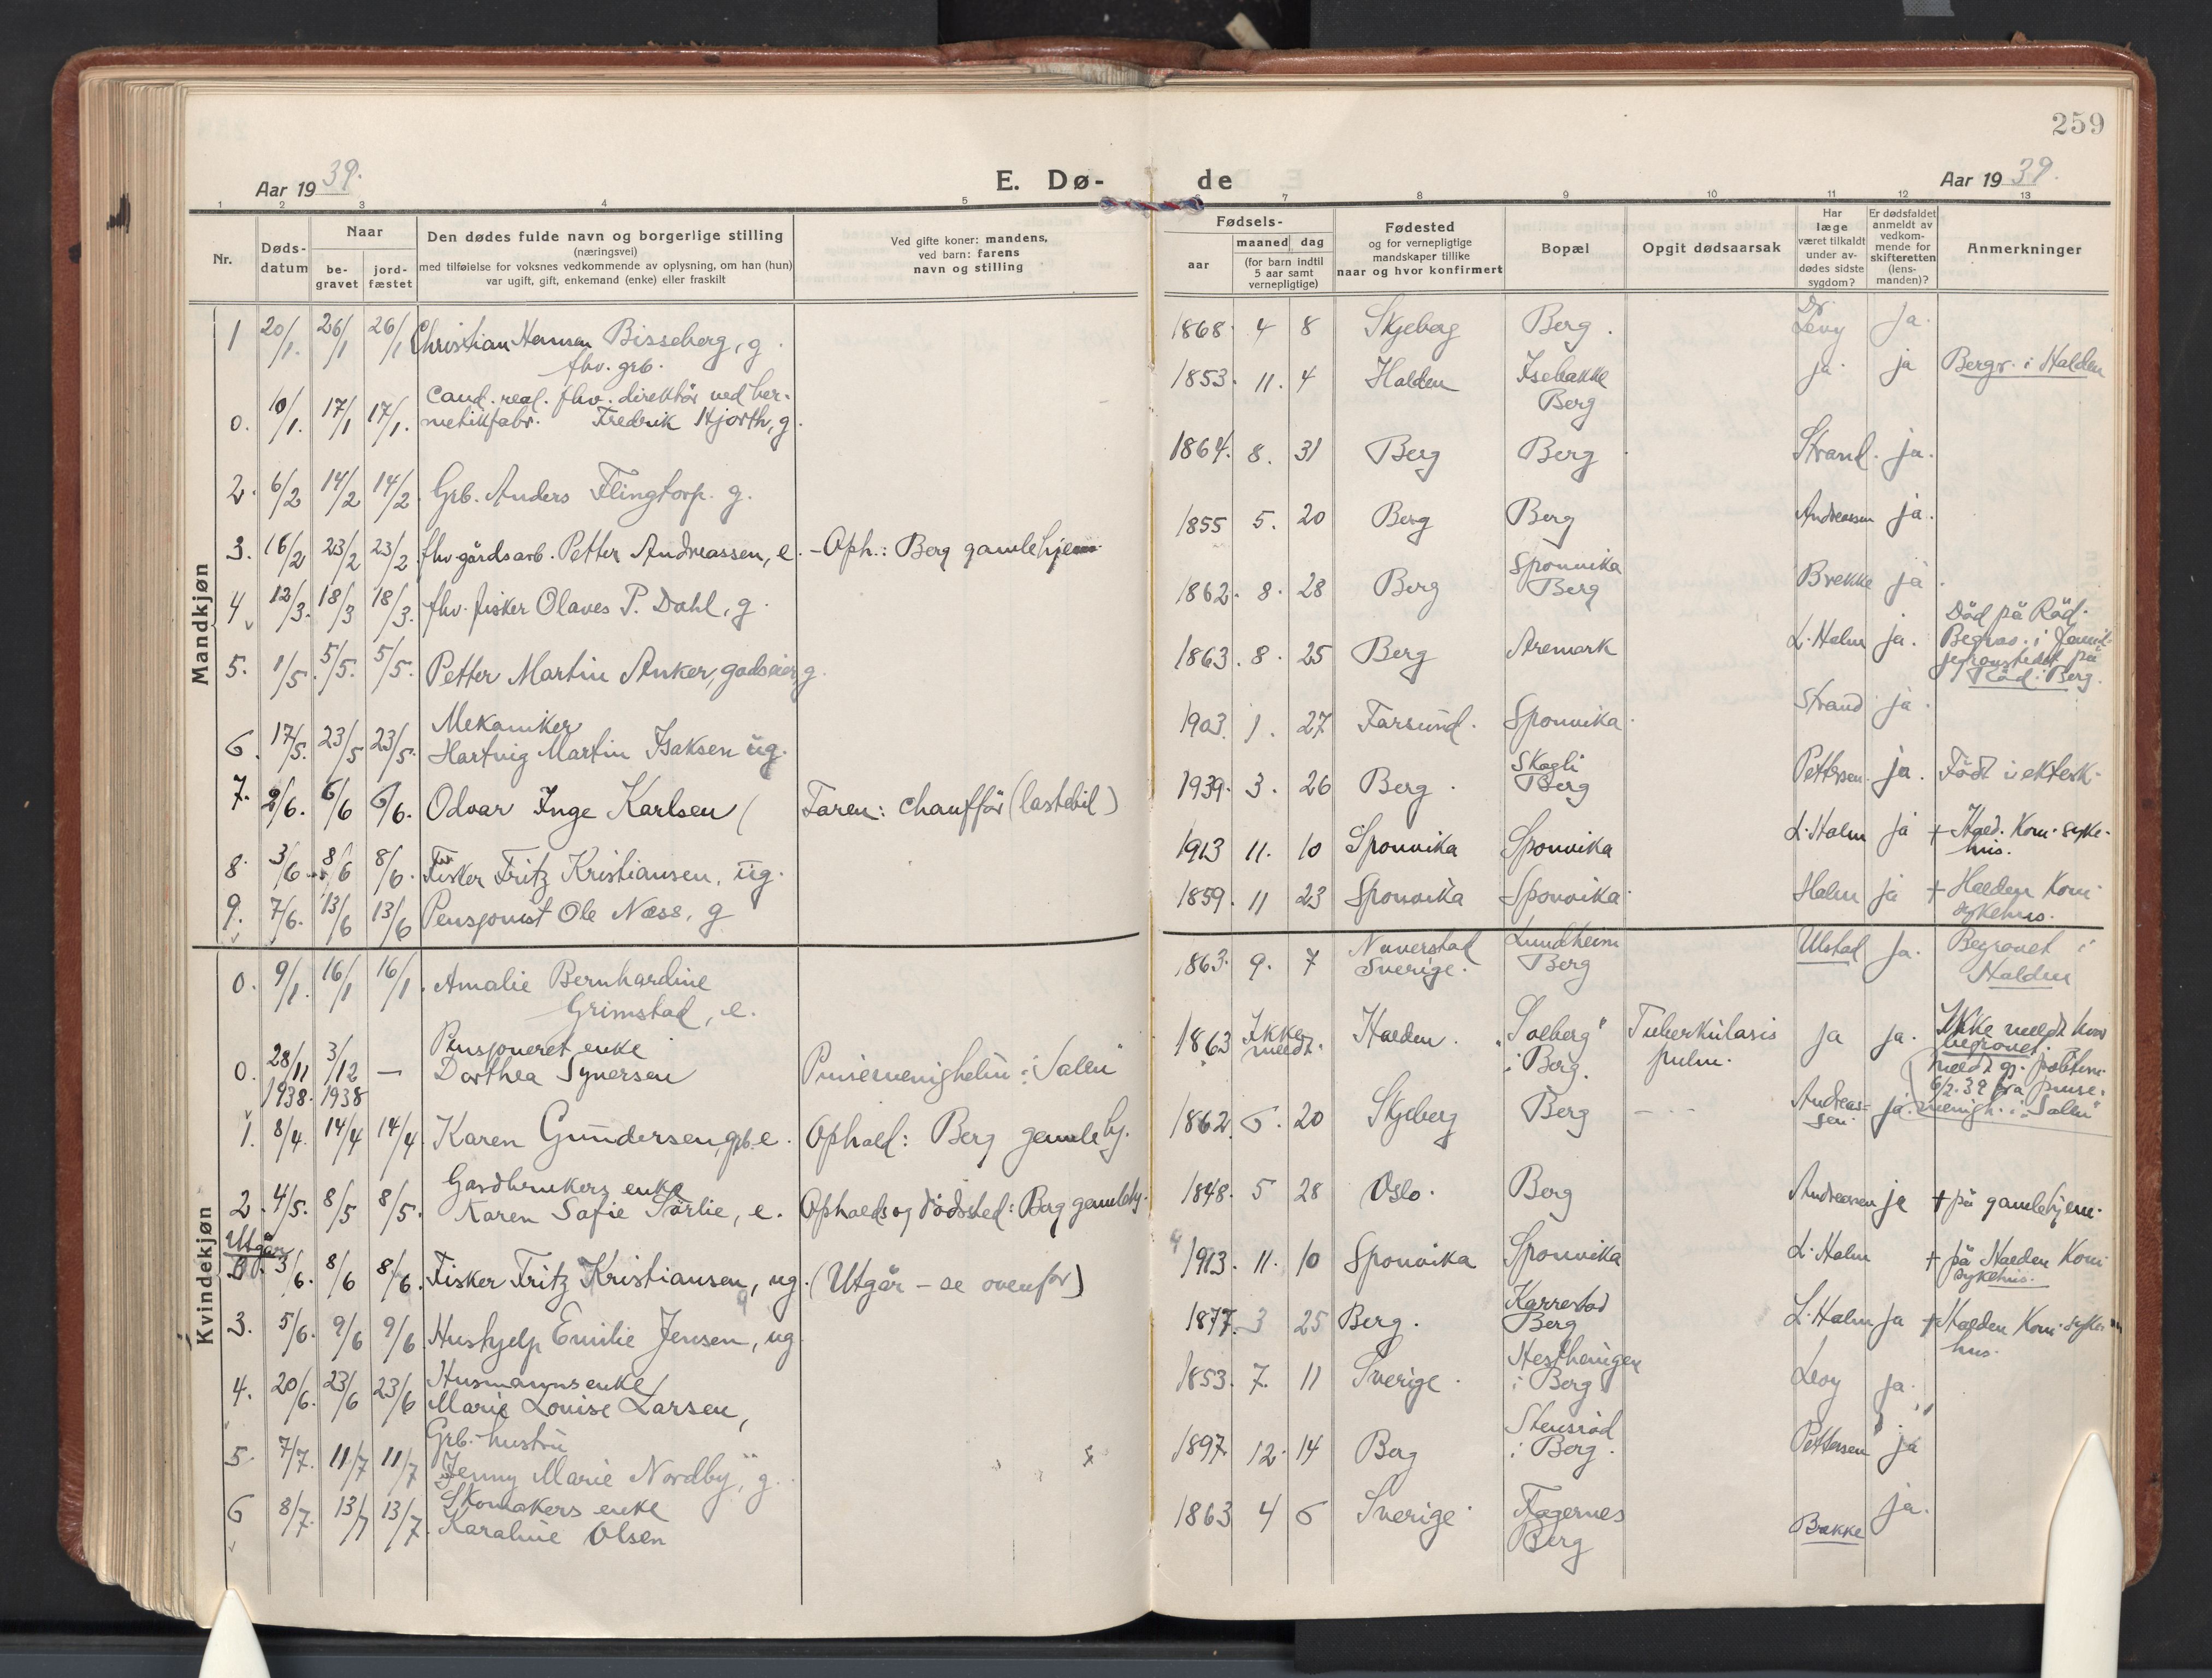 259
Aar 1939.
E. Dø-
de
Aar 1939.
1 2 3 4 5
7 8 9 10 11 12 13
Nr.
Døds-
datum
Naar
be-
gravet
jord-
fæstet
Den dødes fulde navn og borgerlige stilling
(næringsvei)
med tilføielse for voksnes vedkommende av oplysning, om han (hun)
var ugift, gift, enkemand (enke) eller fraskilt
Ved gifte koner: mandens,
ved barn: farens
navn og stilling
Fødsels-
aar
maaned dag
(for barn indtil
5 aar samt
vernepligtige)
Fødested
og for vernepligtige
mandskaper tillike
naar og hvor konfirmert
Bopæl
Opgit dødsaarsak
Har
læge
været tilkaldt
under av-
dødes sidste
sygdom?
Er dødsfaldet
anmeldt av
vedkom-
mende for
skifteretten
(lens-
manden)?
Anmerkninger
Mandkjøn
1 20/1. 26/1 26/1 Christian Hansen Bisseberg, g.
fhv. grb.
1868. 4 8 Skjeberg Berg. Dr. Levy ja.
0. 10/1. 17/1 17/1. Cand. real. fhv. direktör ved her-
metikfabr. Fredrik Hjorth, g.
1853. 11. 4 Halden Isebakke
Berg
ja. ja Begr. i Halden
2. 6/2 14/2 14/2 Grb. Anders Flingtorp. g.
1864. 8. 31 Berg Berg Strand. ja.
3. 16/2 23/2 23/2 fhv. gårdsarb. Petter Andreassen, e. - Oph.: Berg gamlehjem
1855 5. 20 Berg Berg Andreassen ja.
4 12/3. 18/3 18/3. fhv. fisker Olaves P. Dahl, g.
1862. 8. 28 Berg Sponvika
Berg
Brekke ja.
5. 1/5 5/5. 5/5. Petter Martin Anker, godseier, g.
1863. 8. 25 Berg Aremark L. Halm ja. Död på Röd.
Begrav. i famil-
jegravstedet på
Röd i Berg.
6. 17/5. 23/5 23/5. Mekaniker
Hartvig Martin Isaksen ug.
1903. 1. 27 Farsund. Sponvika. Strand ja.
7. 2/6. 6/6 6/6. Odvar Inge Karlsen
Faren: chafför (lastebil)
1939. 3. 26 Berg. Skogli
Berg
Pettersen. ja. Född i ektesk.
8. 3/6 8/6 8/6. Fisker Fritz Kristiansen, ug.
1913 11. 10 Sponvika Sponvika L. Halm ja + Hald. Kom. syke-
hus.
9. 7/6. 13/6 13/6 Pensjonist Ole Næss, g
1859. 11 23 Sponvika Sponvika. Halm ja + Halden Kom.
sykehus.
Kvindekjøn
0. 9/1. 16/1 16/1. Amalie Bernhardine
Grimstad, e.
1863. 9. 7 Naverstad
Sverige.
Lundheim
Berg
Ulstad ja. Begravet i
Halden
0. 28/11 3/12 —
1938. 1938
Pensjoneret enke
Dorthea Synersen
Pinsemenigheten i "Salen"
1863 Ikke
meldt.
Halden. "Solberg"
i Berg.
Tuberkulosis
pulm.
ja ja. Ikke meldt hvor
begravet.
meldt gj. politim.
6/2. 39 fra pinse-
menigh. i "Salen"
1. 8/4. 14/4 14/4 Karen Gundersen, grb. e. Ophold: Berg gamlehj.
1862 6. 20 Skjeberg Berg Andreas-
sen.
ja.
2. 4/5. 8/5 8/5. Gardbrukers enke
Karen Safie Sörlie, e. Opholds og dödssted: Berg gamlehj.
1848. 5 28 Oslo. Berg Andreassen ja + på gamlehjem.
Utgår
3/6. 8/6 8/6. Fisker Fritz Kristiansen, ug. (Utgår - se ovenfor)
1913. 11. 10 Sponvika Sponvika L. Halm + på Halden Kom.
sykehus.
3. 5/6. 9/6 9/6 Hushjelp Emilie Jensen, ug
1877. 3 25 Berg. Karrestad
Berg
L. Halm ja + Halden Kom. syke-
hus.
4. 20/6. 23/6 23/6 Husmannsenke
Marie Louise Larsen,
1853. 7. 11 Sverige.
i Berg
Levy ja.
5. 7/7. 11/7 11/7 Grb. hustru
Jenny Marie Nordby, g.
1897. 12. 14 Berg Stensröd
i Berg.
Pettersen ja
6 8/7. 13/7 13/7. Skomakers enke
Karoline Olsen
1863 4 6 Sverige. Fagernes
Berg
Brekke ja.